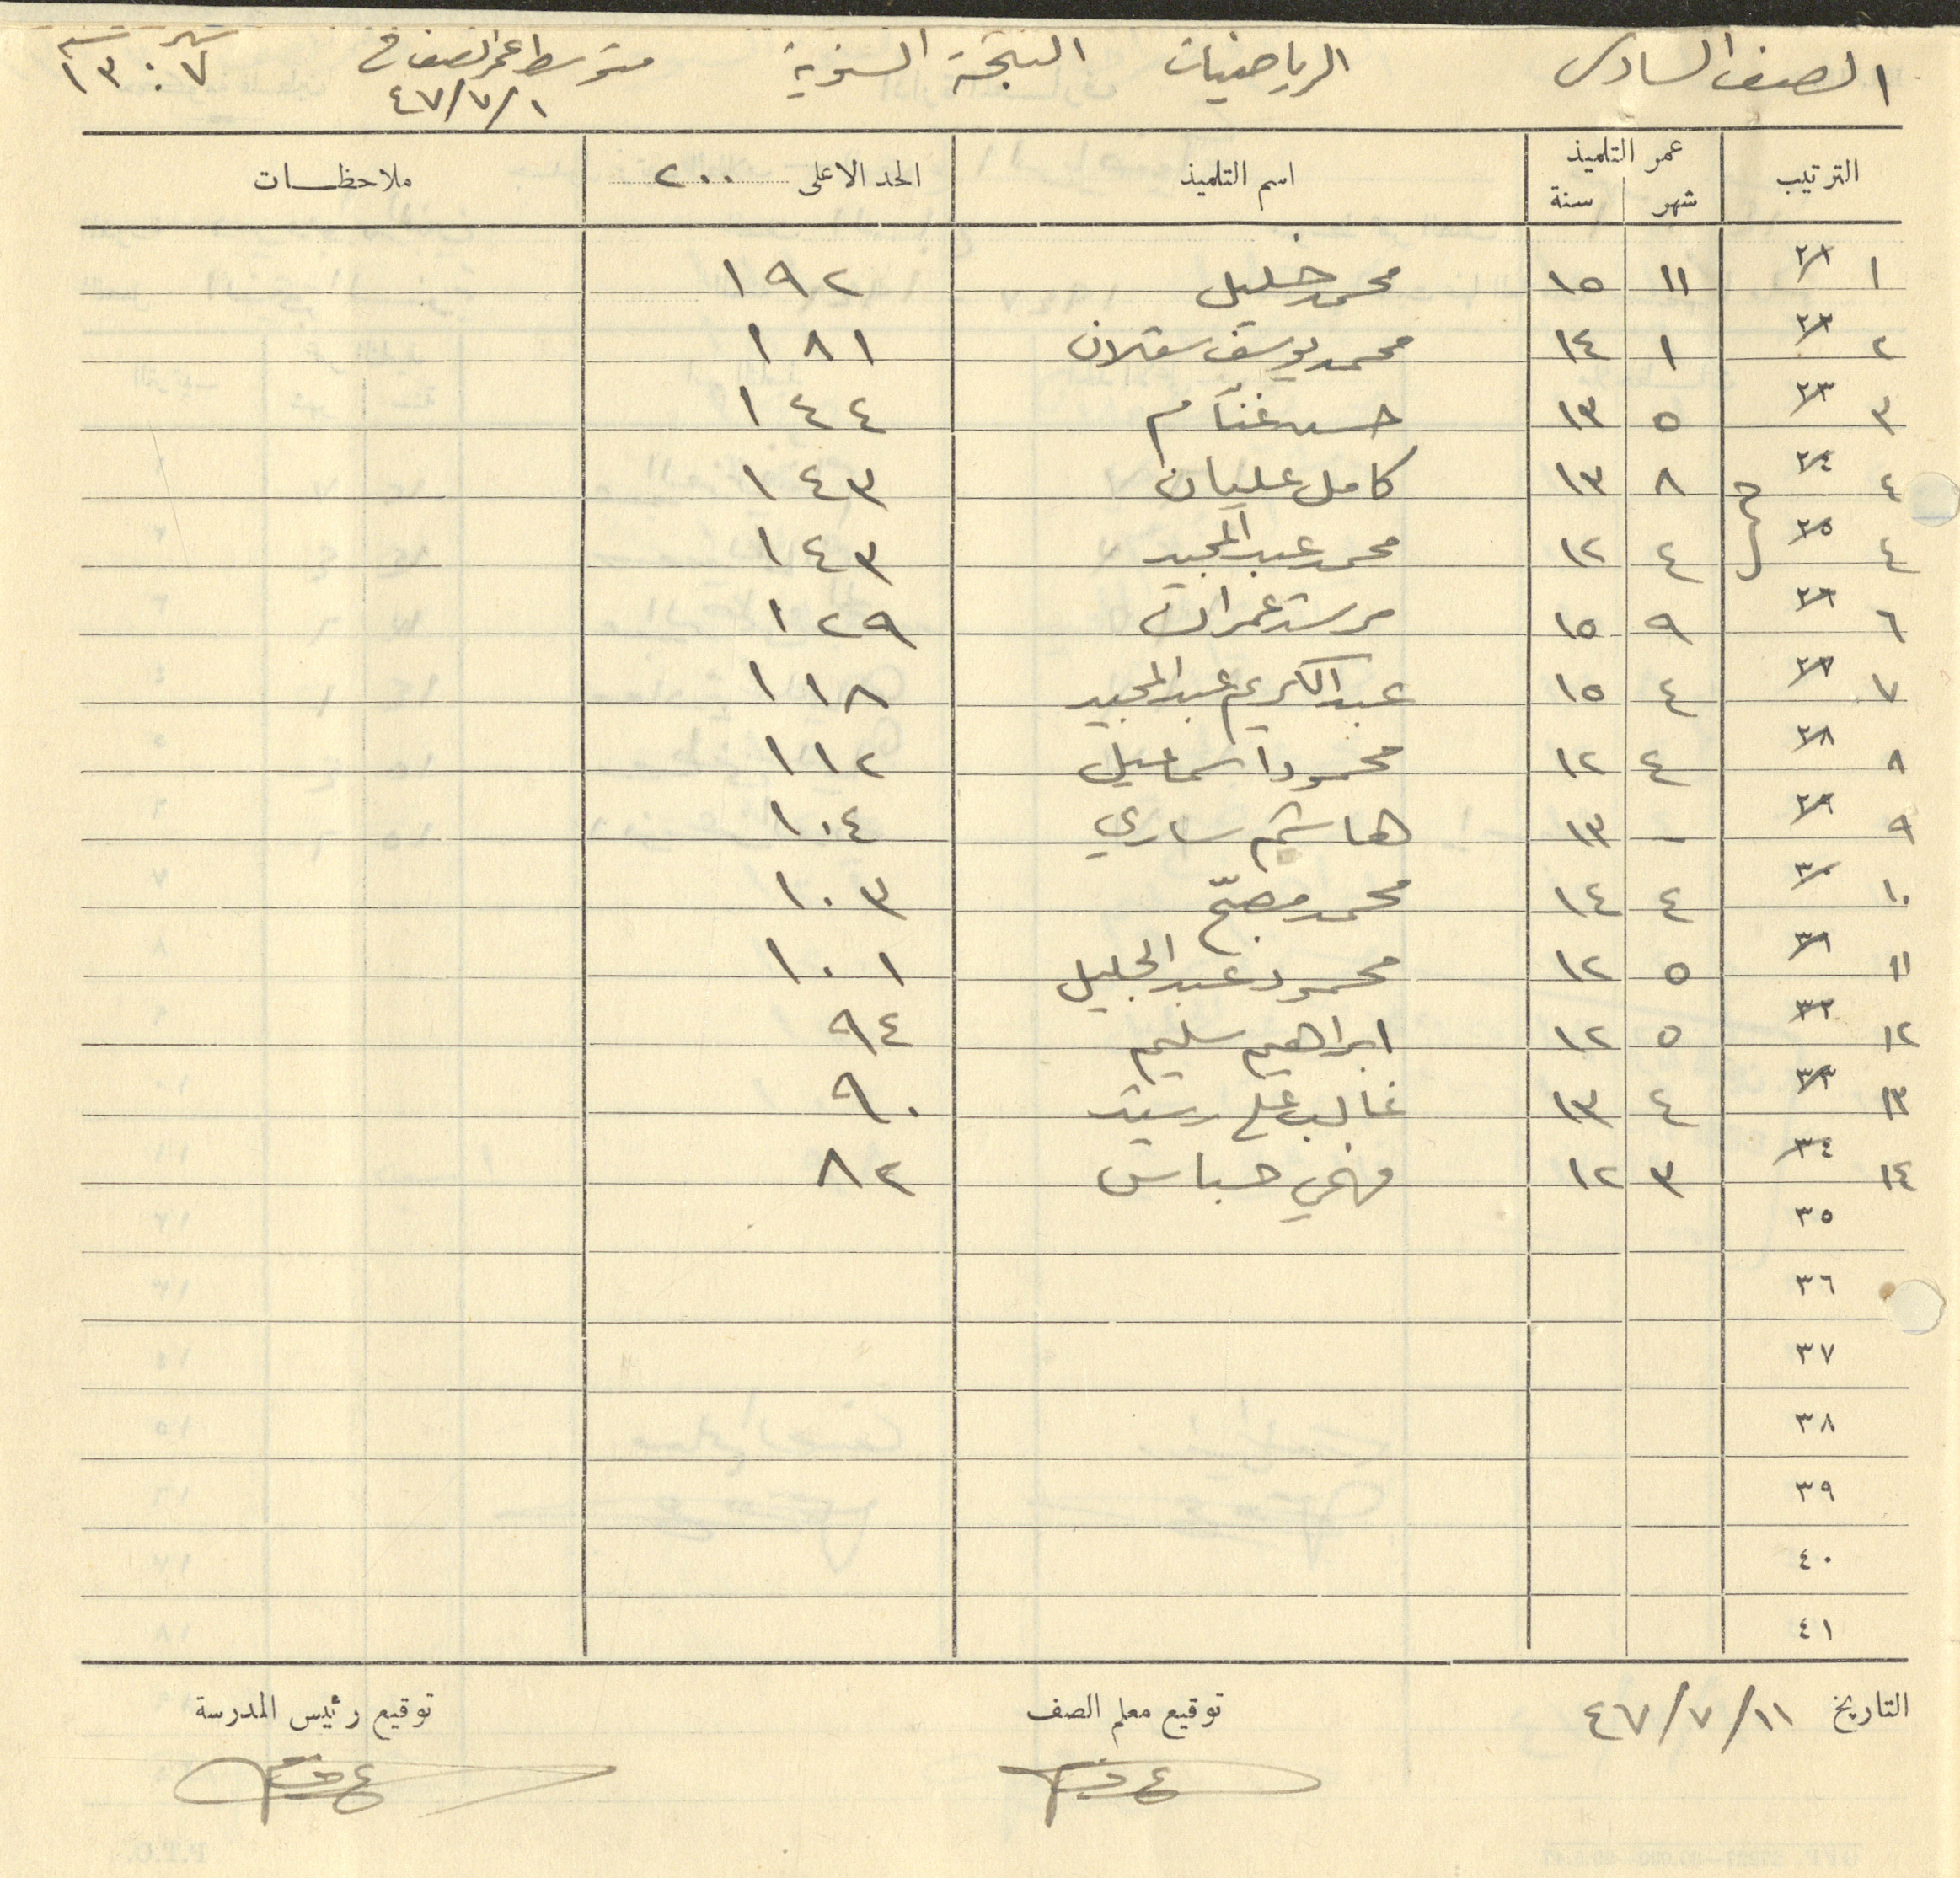 الصف السادس الرياضيات النتيجة السنوية متوسط عمر الصف في ١/٧/٤٧ شهر ٧ سنة ١٣
الترتيب عمر التلميذ اسم التلميذ الحد الاعلى ٢٠٠ ملاحظات
شهر سنة
١ ١١ ١٥ محمد خليل ١٩٢
٢ ١ ١٤ محمد يوسف سقلان ١٨١
٣ ٥ ١٣ حسن غنّام ١٤٤
٤ ٨ ١٣ كامل عليان ١٤٣
٤ ٤ ١٢ محمد عبد المجيد ١٤٣
٦ ٩ ١٥ مرشد عمران ١٢٩
٧ ٤ ١٥ عبد الكريم عبد المجيد ١١٨
٨ ٤ ١٢ محمود اسماعيل ١١٢
٩ - ١٣ هاشم ساري ١٠٤
١٠ ٤ ١٤ محمد مصبّح ١٠٣
١١ ٥ ١٢ محمود عبد الجليل ١٠١
١٢ ٥ ١٢ ابراهيم سليم ٩٤
١٣ ٤ ١٣ غالب علي رشيد ٩٠
٣٤ ١٤ ٣ ١٢ فهمي حباس ٨٢
٣٥
٣٦
٣٧
٣٨
٣٩
٤٠
٤١
التاريخ ١١/٧/٤٧ توقيع معلم الصف توقيع رئيس المدرسة